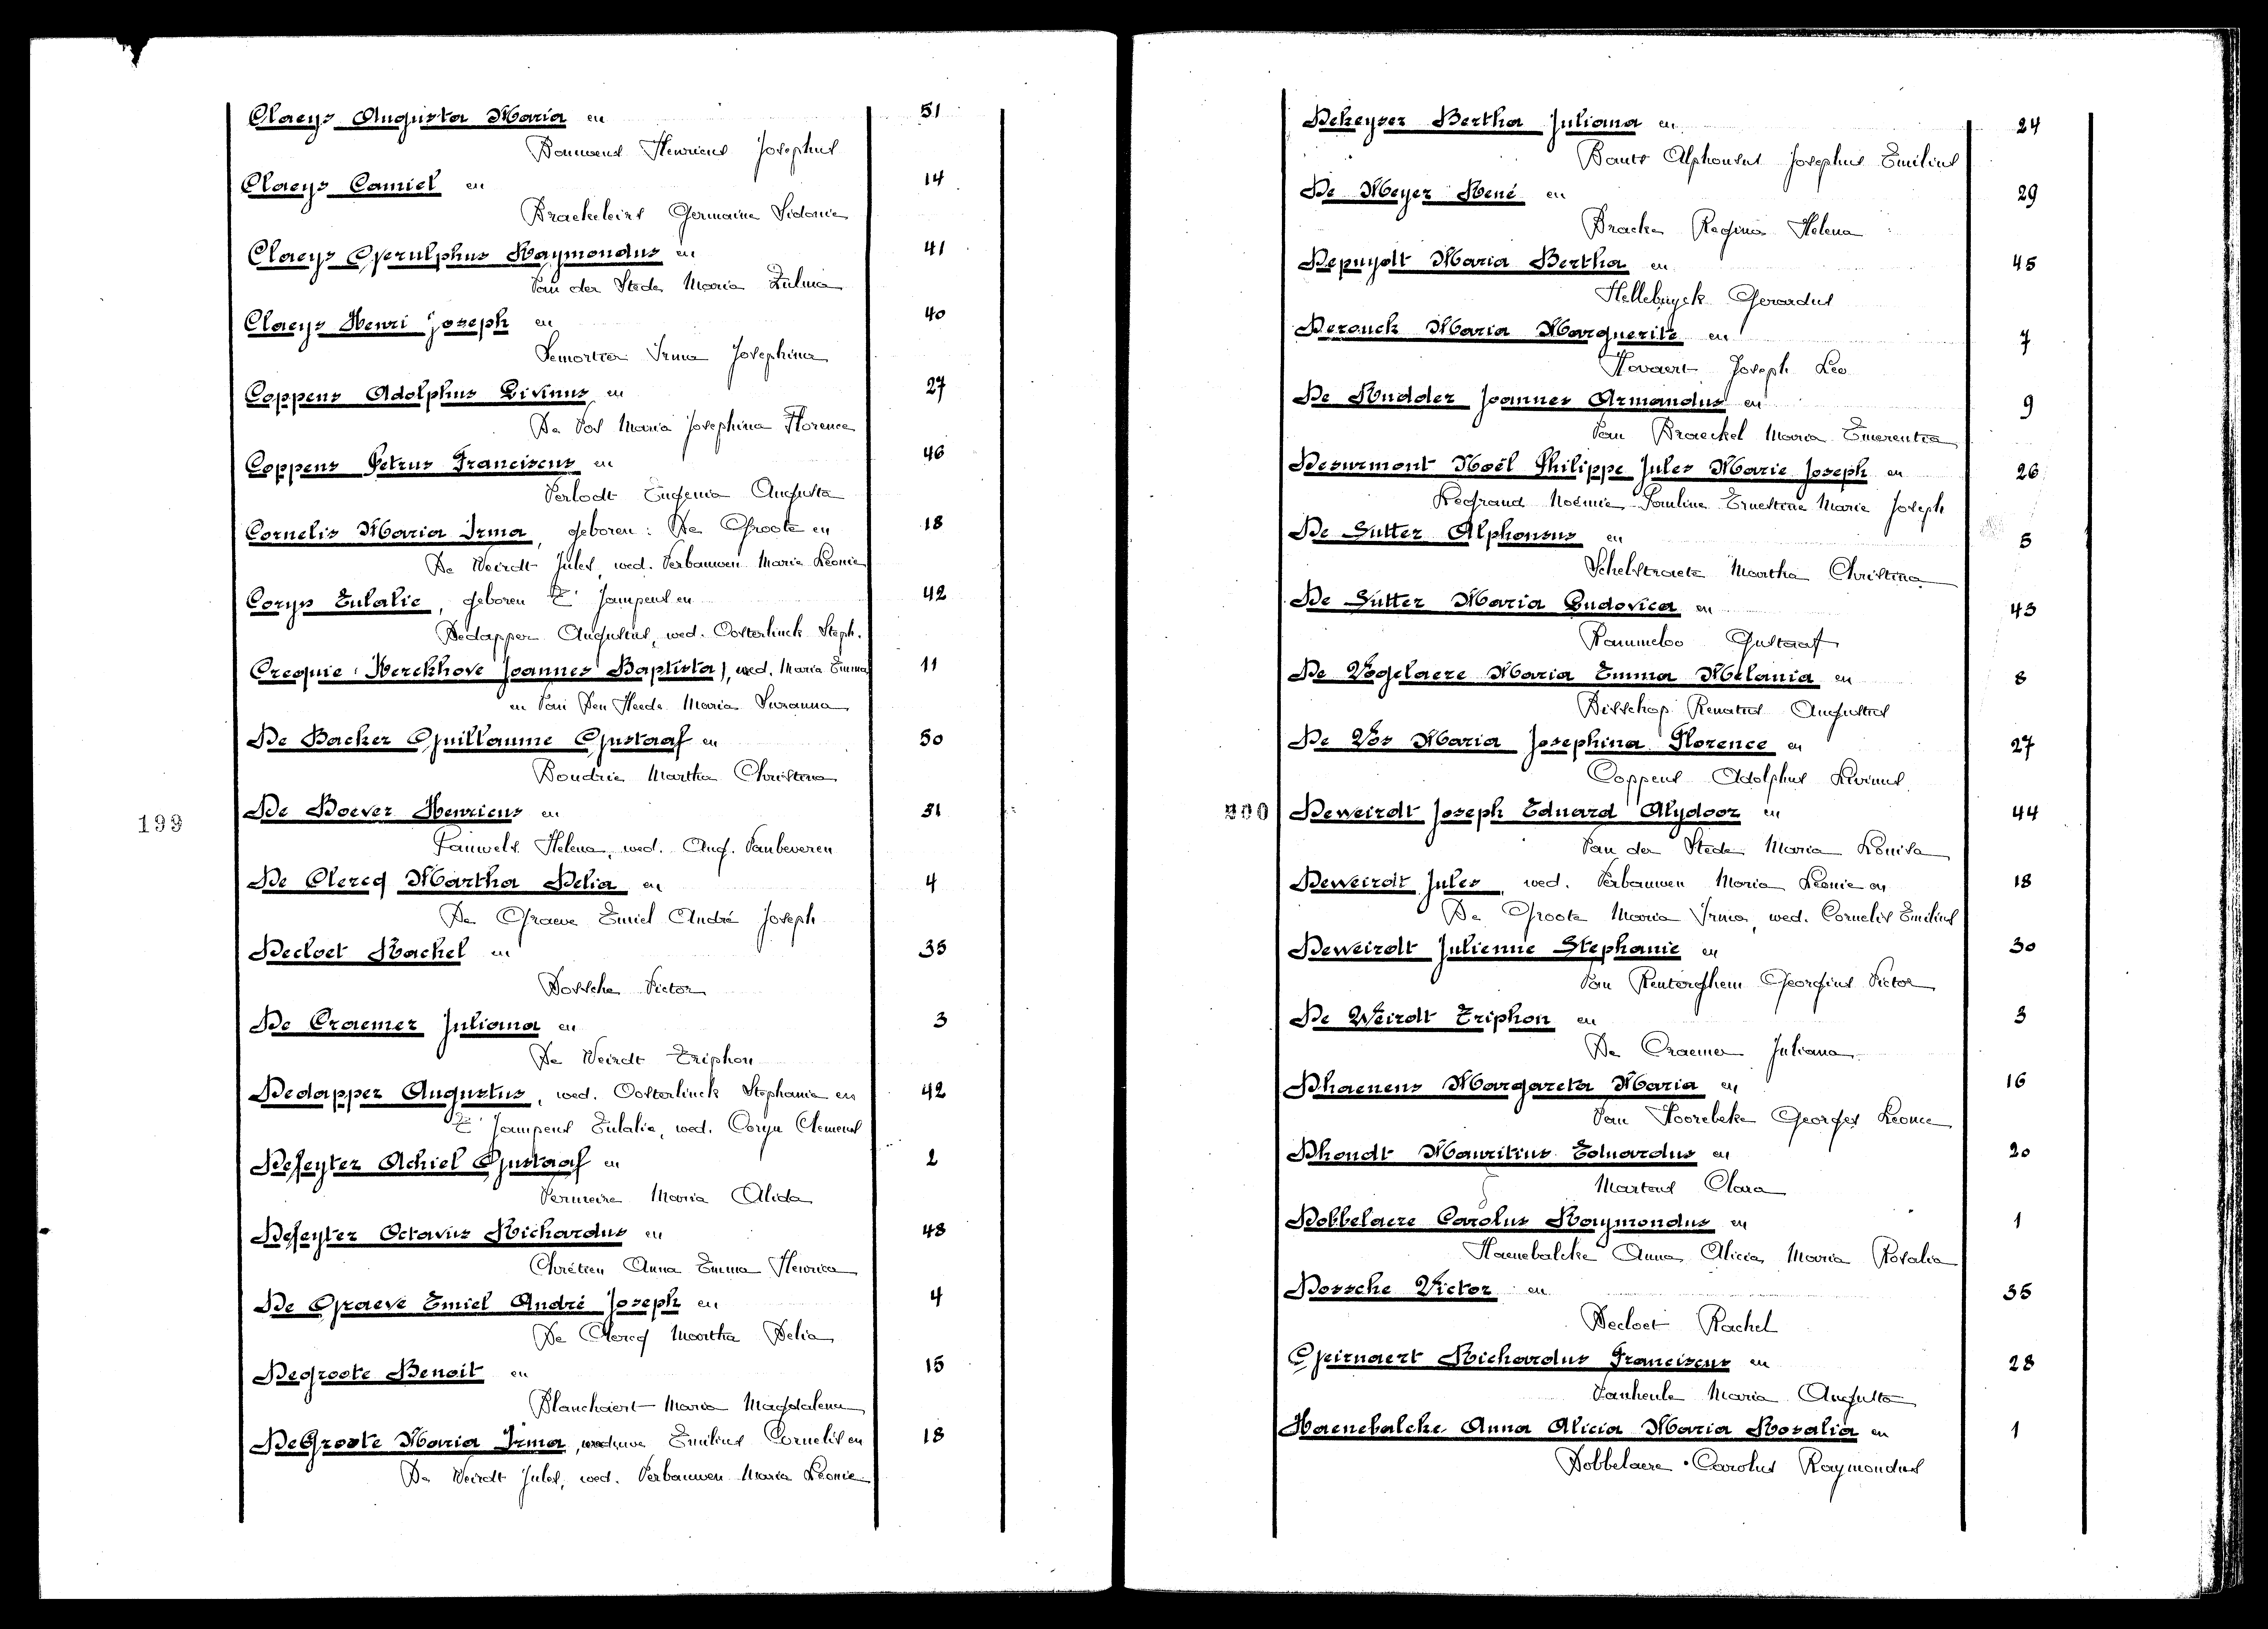 Claeys Augusta Maria en 51
Bauwens Henricus Josephus
Claeys Camiel en 14
Braekeleirs Germaine Sidonie
Claeys Gerulphus Raymondus en 41
Van der Stede Maria Zulma
Claeys Henri Joseph en 40
Lemortier Irma Josephina
Coppens Adolphus Livinus en 27
De Vos Maria Josephina Florence
Coppens Petrus Franciscus en 46
Verlodt Eugenia Augusta
Cornelis Maria Irma, geboren: De Groote en 18
De Weirdt Jules, wed. Verbauwen Maria Leonie
Coryn Eulalie, geboren T' Jampens en 42
Dedapper Augustus, wed. Oosterlinck Steph.
Crequie (Kerckhove Joannes Baptista), wed. Maria Emma 11
en Van Den Heede Maria Suzanna
De Backer Guillaume Gustaaf en 50
Boudrie Martha Christina
199
De Boever Henricus en 31
Pauwels Helena, wed. Aug. Vanbeveren
De Clercq Martha Delia en 4
De Graeve Emiel André Joseph
Decloet Rachel en 35
Dossche Victor
De Craemer Juliana en 3
De Weirdt Triphon
Dedapper Augustus, wed. Oosterlinck Stephanie en 42
T' Jampens Eulalie, wed. Coryn Clemens
Defeyter Achiel Gustaaf en 2
Vermeire Maria Alida
Defeyter Octavus Richardus en 48
Chrétien Anna Emma Henrica
De Graeve Emiel André Joseph en 4
De Clercq Martha Delia
Degroote Benoit en 15
Blanchaert Maria Magdalena
De Groote Maria Irma, weduwe Emilius Cornelis en 18
De Weirdt Jules, wed. Verbauwen Maria Leonie
Dekeyser Bertha Juliana en 24
Bauts Alphonsus Josephus Emilius
De Meyer René en 29
Bracke Regina Helena
Depuydt Maria Bertha en 45
Hellebuyck Gerardus
Derouck Maria Marguerite en 7
Hovaert Joseph Leo
De Rudder Joannes Armandus en 9
Van Braeckel Maria Emerentia
Desurmont Noël Philippe Jules Marie Joseph en 26
Legrand Noémie Pauline Ernestine Marie Joseph
De Sutter Alphonsus en 5
Schelstraete Martha Christina
De Sutter Maria Ludovica en 43
Rammeloo Gustaaf
De Vogelaere Maria Emma Melania en 8
Disschop Renatus Augustus
De Vos Maria Josephina Florence en 27
Coppens Adolphus Livinus
200
Deweirdt Joseph Eduard Alydoor en 44
Van der Stede Maria Louisa
Deweirdt Jules, wed. Verbauwen Maria Leonie en 18
De Groote Maria Irma, wed. Cornelis Emilius
Deweirdt Julienne Stephanie en 30
Van Renterghem Georgius Victor
De Weirdt Triphon en 3
De Craemer Juliana
Dhaenens Margareta Maria en 16
Van Hoorebeke Georges Leonce
Dhondt Mauritius Eduardus en 20
Martens Clara
Dobbelaere Carolus Raymondus en 1
Haenebalcke Anna Alicia Maria Rosalia
Dossche Victor en 35
Decloet Rachel
Geirnaert Richardus Franciscus en 28
Vanheule Maria Augusta
Haenebalcke Anna Alicia Maria Rosalia en 1
Dobbelaere Carolus Raymondus